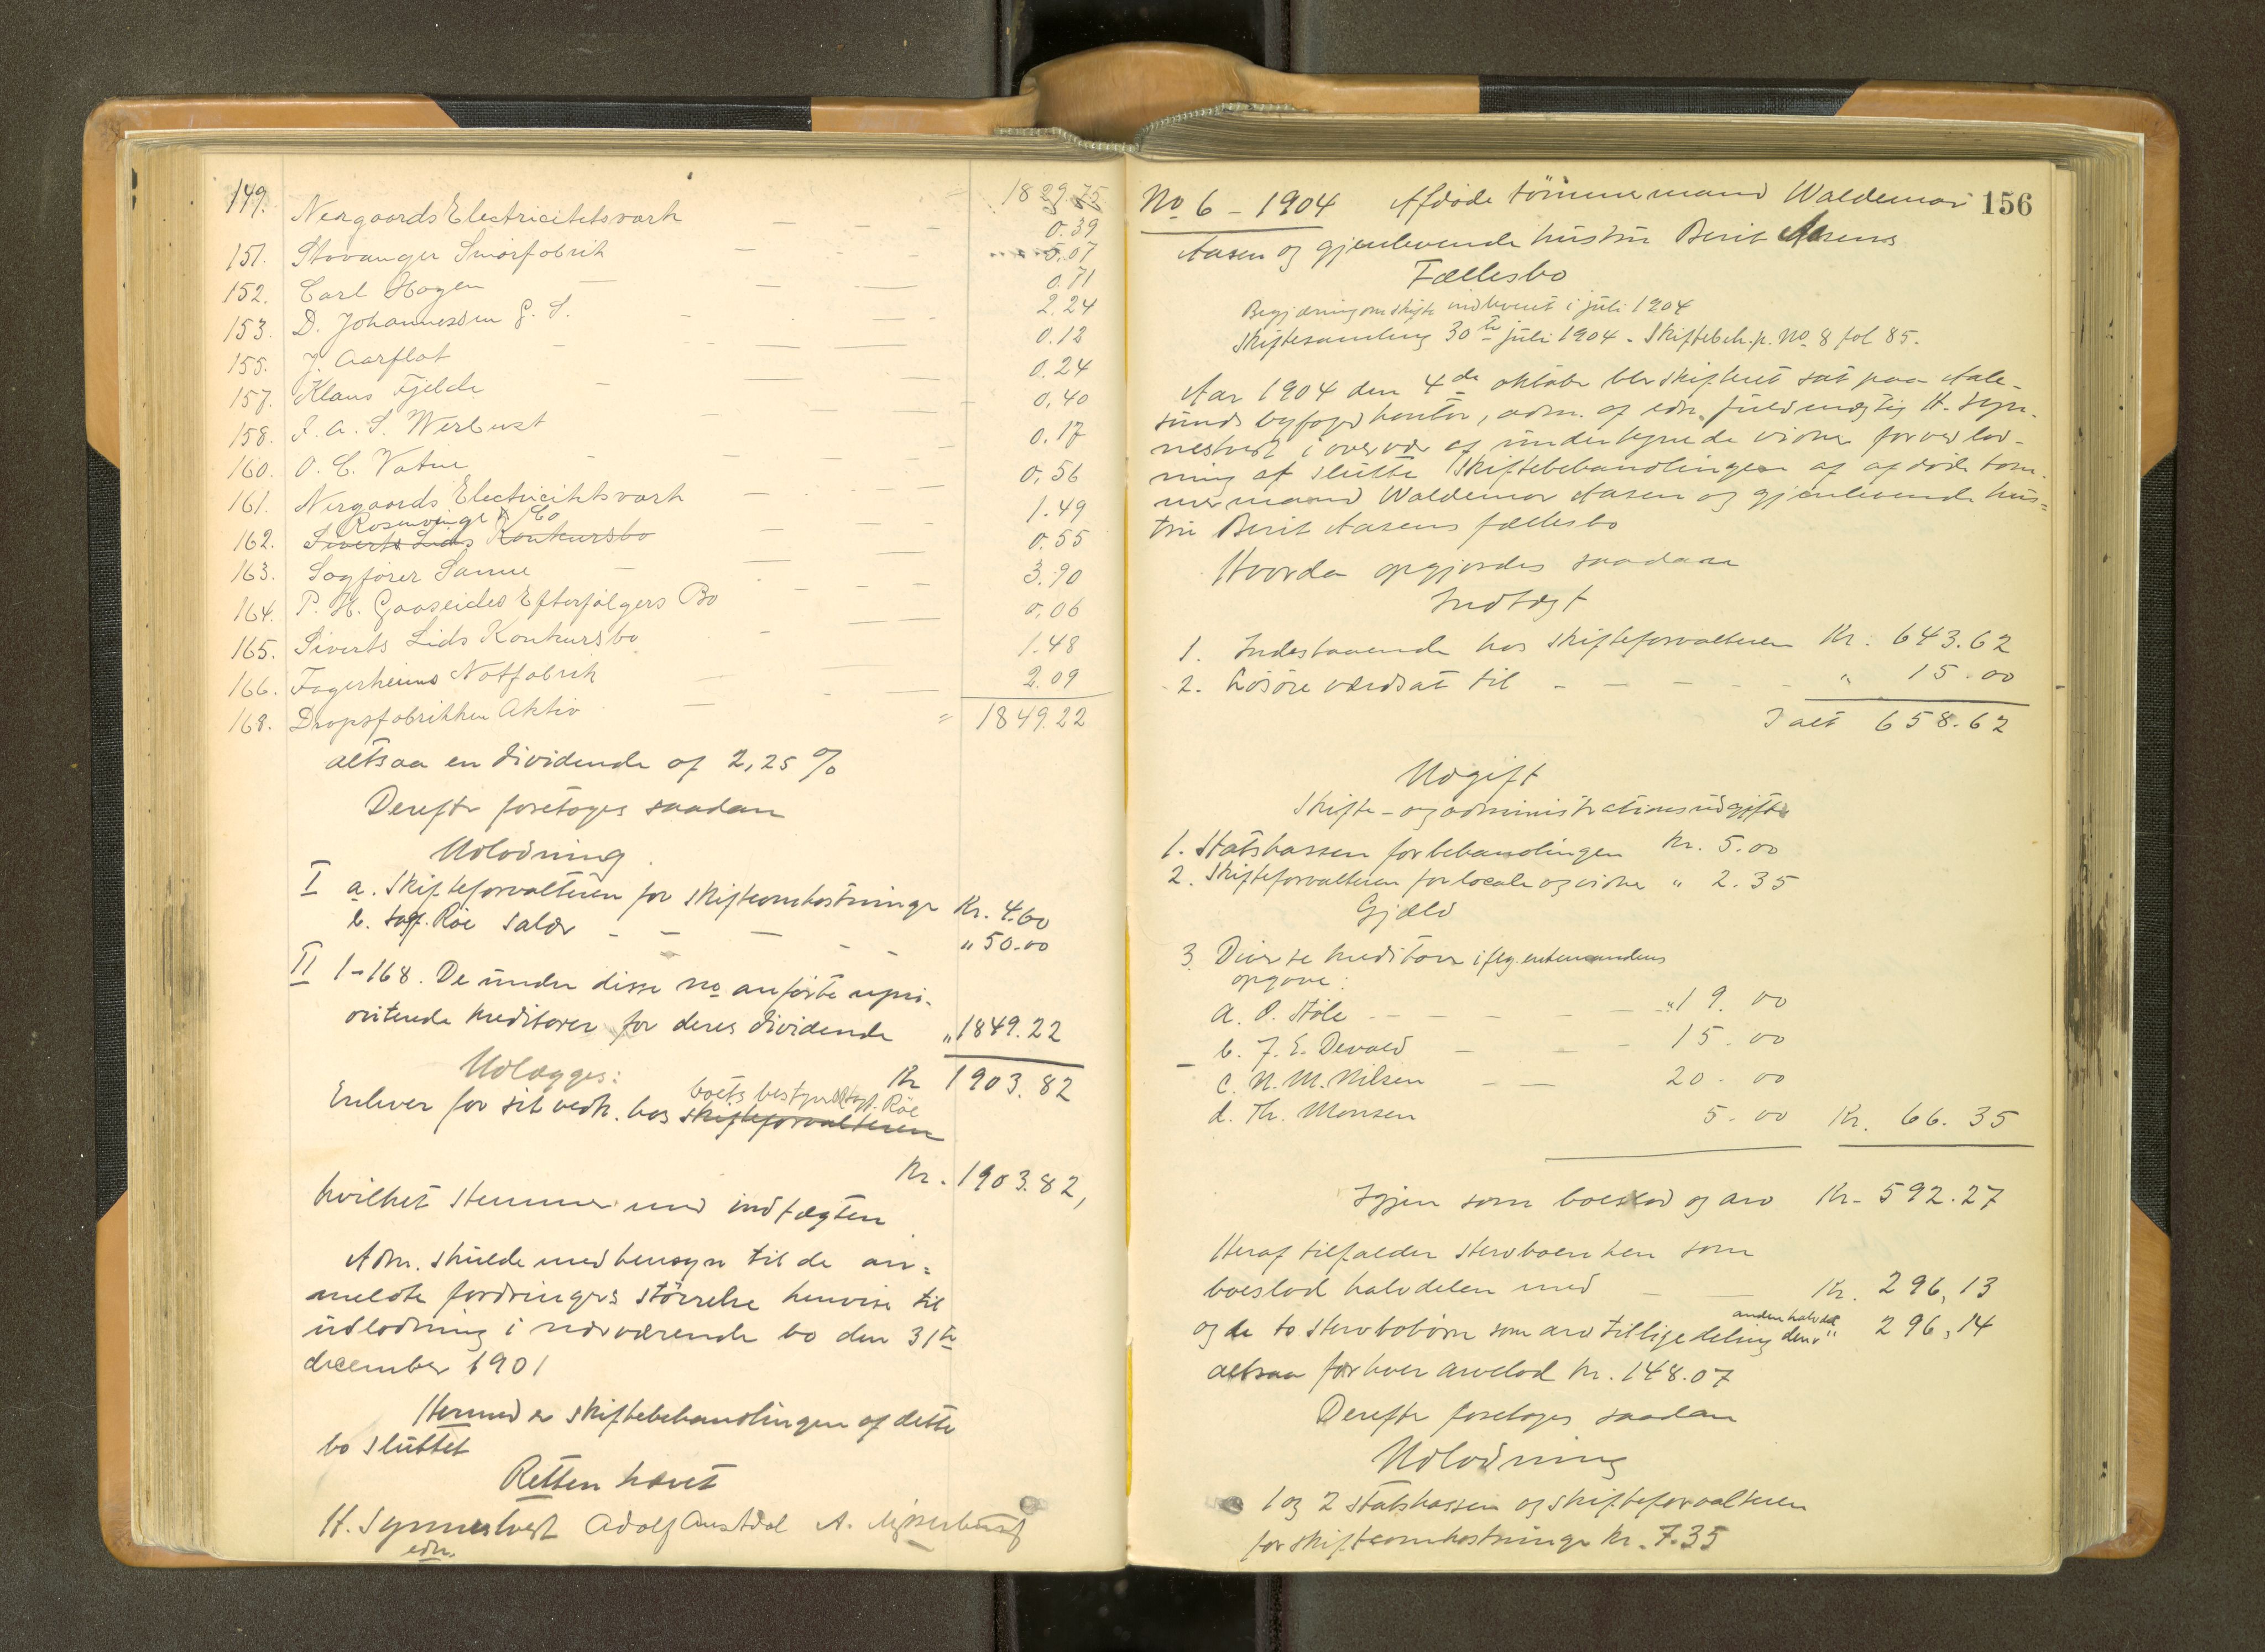 149. Nergaards Electricitetsværk — — — 1829.75
0.39
151. Stavanger Smørfabrik — — 5.07
152. Carl Hagen — — — 0.71
153. D. Johannessen G. S. — — — 2.24
155. J. Aarflot — — — 0.12
157. Klaus Fjelde — — — 0.24
158. J. A. S. Werlust — — — 0.40
160. O. C. Vatne — — — 0.17
161. Nergaards Electricitetsværk — — — 0.56
Rosenvinge & Co
162. Siverts Lids Konkursbo — — 1.49
163. Sagfører Sanne — — — 0.55
164. P. H. Gaaseides Efterfølgers Bo — — — 3.90
165. Siverts Lids Konkursbo — — 0.06
166. Fagerheims Notfabrik — — — 1.48
168. Dropsfabrikken Aktiv — 2.09
= 1849.22
altsaa en dividende af 2,25 %
Derefter foretoges saadan
Udlodning.
I a. Skifteforvalteren for skifteomkostninger Kr. 4.60
b. sagf. Röe salær — — — — " 50.00
II 1-168. De under disse no anførte upri-
oriterede kreditorer for deres dividende " 1849.22
Kr 1903.82
Udlægges:
boets bestyrer sagf. Röe
Enhver for sit vedk. hos skifteforvalteren
Kr. 1903.82,
hvilket stemmer med indtægten
Adm. skulde med hensyn til de an=
meldte fordringers størrelse henvise til
udlodning i nærværende bo den 31te
december 1901
Hermed er skiftebehandlingen af dette
bo sluttet
Retten hævet
H. Synnestvedt Adolf Austdal A.
edn.
No 6 - 1904 Afdøde tømmermand Waldemar 156
Aasen og gjenlevende hustru Berit Aasens
Fællesbo
Begjæring om skifte indleveret i juli 1904
Skiftesamling 30te juli 1904 - Skiftebeh.p. No 8 fol 85.
Aar 1904 den 4de oktober blev skifteret sat paa Aale-
sunds byfogedkontor, adm. af edn. fuldmægtig H. Syn-
nestvedt i overvær af undertegnede vidner for ved lod-
ning at slutte skiftebehandlingen af afdøde tøm-
mermand Waldemar Aasen og gjenlevende hus=
tru Berit Aasens fællesbo
Hvorda opgjordes saadan
Indtægt
1. Indestaaende hos skifteforvalteren Kr. 643.62
2. Løsøre værdsat til — — — — — " 15.00
I alt 658.62
Udgift
Skifte- og administrationsudgifter
1. Statskassen for behandlingen Kr. 5.00
2. Skifteforvalteren for locale og vidner " 2.35
Gjæld
3. Diverse kreditorer iflg. enkemandens
opgave:
a. O. Støle — — — — — " 19.00
b. J. E. Devold — — — 15.00
c. N. M. Nilsen — — 20.00
d. Th. Monsen 5.00 Kr. 66.35
Igjen som boeslod og arv Kr. 592.27
Heraf tilfalder stervboenken som
boeslod halvdelen med — — Kr. 296,13
anden halvdel
og de to stervbobørn som arv til lige deling den " 296,14
altsaa for hver arvelod Kr. 148.07
Derefter foretoges saadan
Udlodning
1 og 2 statskassen og skifteforvalteren
for skifteomkostninger kr. 7.35